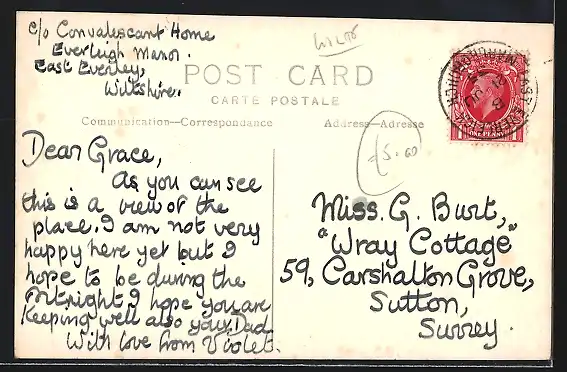 c/o Convalescant Home
Everleigh Manor.
East Everley,
Wiltshire.
POST CARD
CARTE POSTALE
Communication—Correspondence
Address—Adresse
£5.00
ONE PENNY
Dear Grace,
As you can see
this is a view of the
place. I am not very
happy here yet but I
hope to be during the
fortnight I hope you are
keeping well also your Dad
With love from Violet.
Miss. G. Burt,
"Wray Cottage"
59, Carshalton Grove,
Sutton,
Surrey.